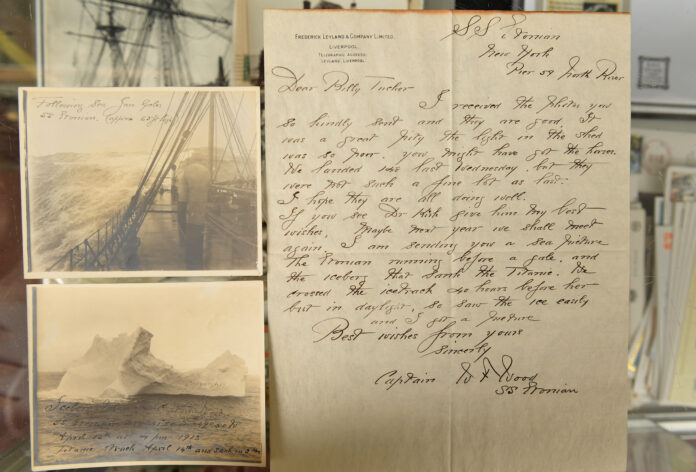 Frederick Leyland & Company Limited.
Liverpool.
Telegraphic Address,
Leyland, Liverpool.
SS Etonian
New York
Pier 59 North River
Dear Billy Tucker
I received the photos you
so kindly sent and they are good. It
was a great pity the light in the shed
was so poor. you might have got the horses.
We landed last Wednesday. but they
were not such a fine lot as last.
I hope they are all doing well.
If you see Dr give him my best
wishes, Maybe next year we shall meet
again. I am sending you a sea picture
The Etonian running before a gale. and
the iceberg that sank the Titanic. We
crossed the icetrack 40 hours before her
but in daylight, so saw the ice easily
and I got a picture
Best wishes from yours
Sincerely
Captain W F Wood
SS Etonian
Following Sea, Gale
SS Etonian,
SS Etonian
April 12th at 4 pm 1912
Titanic struck April 14th and sank in